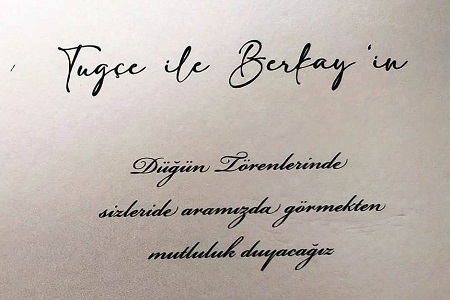 Tugçe ile Berkay'in
Düğün Törenlerinde
sizleride aramızda görmekten
mutluluk duyacağız